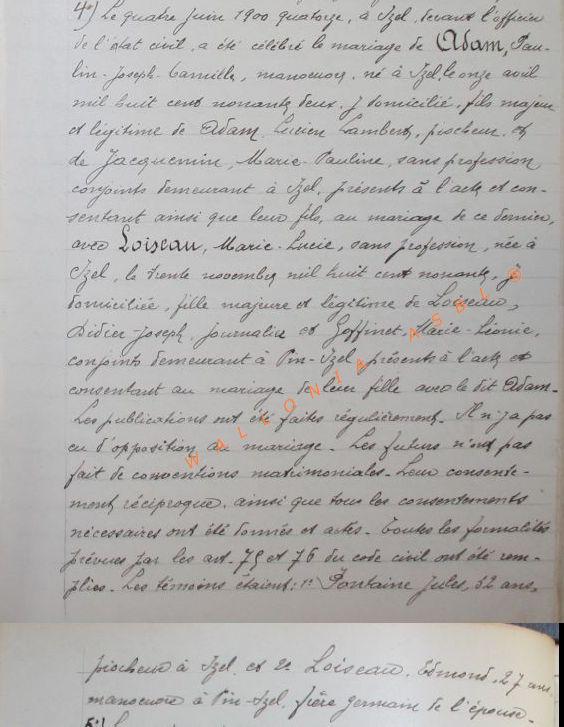 4°) Le quatre juin 1900 quatorze, à Izel, devant l'officier
de l'état civil, a été célébré le mariage de Adam, Pau-
lin-Joseph-Camille, manoeuvre, né à Izel, le onze avril
mil huit cent nonante deux, y domicilié, fils majeur
et légitime de Adam, Lucien Lambert, piocheur, et
de Jacquemin, Marie-Pauline, sans profession,
conjoints demeurant à Izel, présents à l'acte et con-
sentant ainsi que leur fils, au mariage de ce dernier,
avec Loiseau, Marie-Lucie, sans profession, née à
Izel, le trente novembre mil huit cent nonante, y
domiciliée, fille majeure et légitime de Loiseau,
Didier-Joseph, journalier et Goffinet, Marie-Léonie,
conjoints demeurant à Pin-Izel, présents à l'acte et
consentant au mariage de leur fille avec le dit Adam-
Les publications ont été faites régulièrement. Il n'y a pas
eu d'opposition au mariage. Les futurs n'ont pas
fait de conventions matrimoniales. Leur consente-
ment réciproque, ainsi que tous les consentements
nécessaires ont été donnés et actés. Toutes les formalités
prévues par les art. 75 et 76 du code civil ont été rem-
plies. Les témoins étaient: 1° Fontaine Jules, 32 ans,
piocheur à Izel, et 2° Loiseau, Edmond, 27 ans,
manoeuvre à Pin-Izel, frère germain de l'épouse.
5°)
WALLONIA ASBL ©